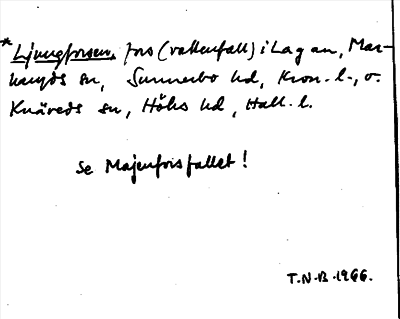 *Ljungforsen, fors (vattenfall) i Lagan, Mar-
karyds sn, Sunnerbo hd, Kron. l., o.
Knäreds sn, Höks hd, Hall. l.
Se Majenforsfallet!
T.N.B. 1966.